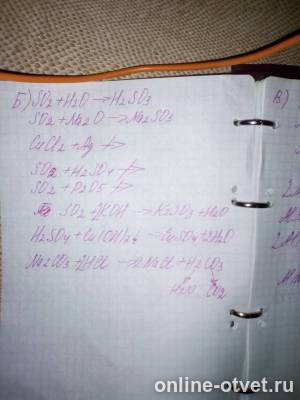 Б) SO2 + H2O → H2SO3
SO2 + Na2O → Na2SO3
CuCl2 + Ag ↛
SO2 + H2SO4 ↛
SO2 + P2O5 ↛
SO2 + 2KOH → K2SO3 + H2O
H2SO4 + Cu(OH)2 → CuSO4 + 2H2O
Na2CO3 + 2HCl → 2NaCl + H2CO3
H2O CO2
В)
online-otvet.ru